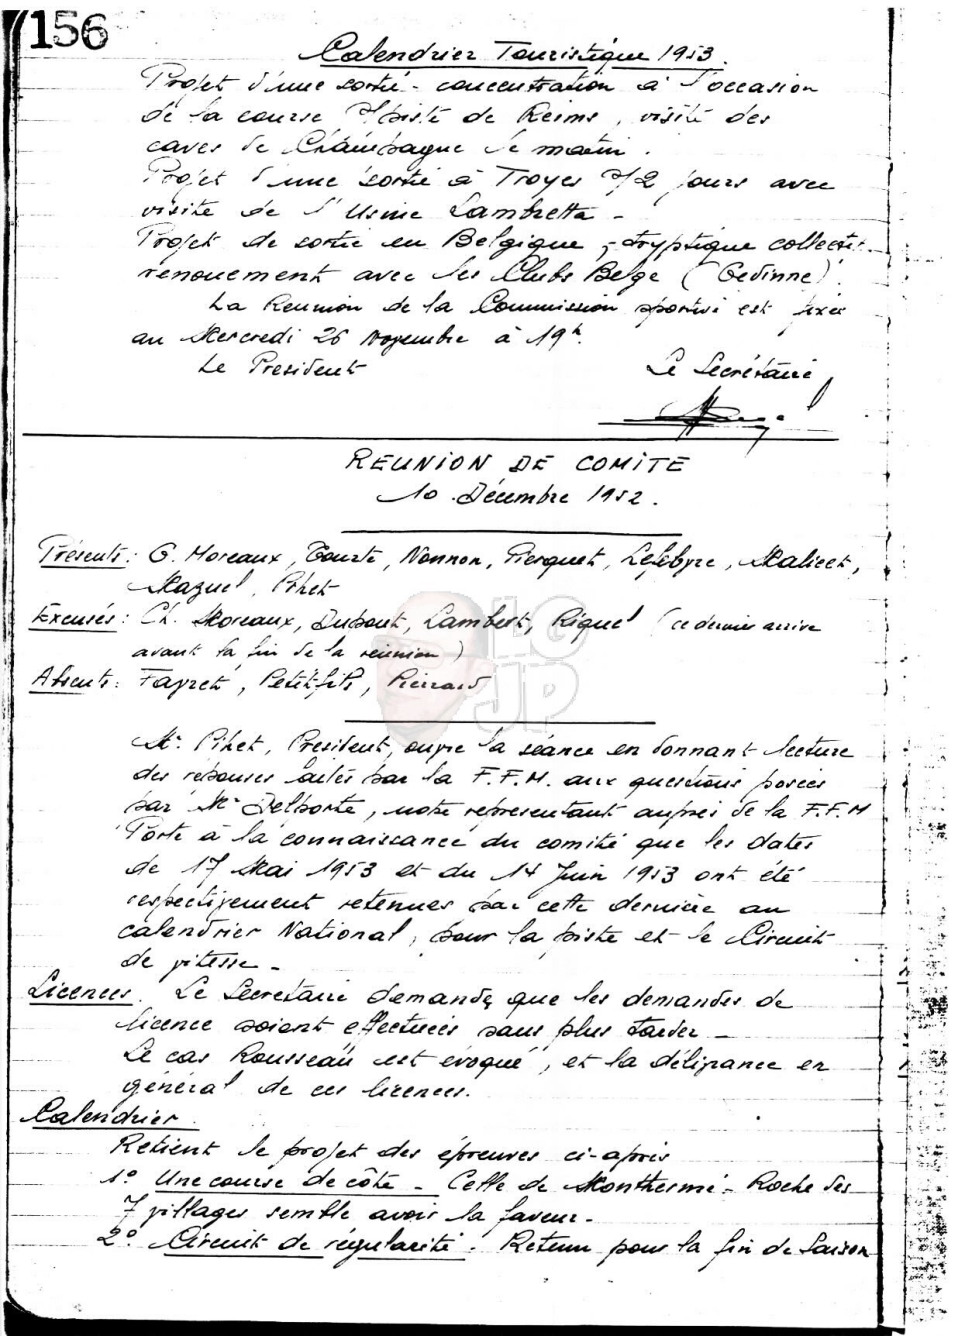 156
Calendrier Touristique 1953.
Projet d'une sortie-concentration à l'occasion
de la course s/piste de Reims, visite des
caves de Champagne le matin.
Projet d'une sortie à Troyes s/2 jours avec
visite de l'Usine Lambretta -
Projet de sortie en Belgique, - tryptique collectif
renouement avec les Clubs Belge (Gedinne).
La Reunion de la Commission sportive est fixée
au Mercredi 26 Novembre à 19h.
Le President
Le Secrétaire
REUNION DE COMITE
10 Décembre 1952.
Présents : G. Moreaux, Tourte, Nonnon, Pierquet, Lefebvre, Malicet,
Mazuel, Pihet
Excusés : Ch. Moreaux, Dubout, Lambert, Riquel (ce dernier arrive
avant la fin de la réunion)
Absents : Fayret, Petitfils, Pierrard
LG
JP
Mr. Pihet, President, ouvre la séance en donnant lecture
des réponses faites par la F.F.M. aux questions posées
par Mr Delporte, notre représentant auprès de la F.F.M
Porte à la connaissance du comité que les dates
de 17 Mai 1953 et du 14 Juin 1953 ont été
respectivement retenues par cette dernière au
calendrier National, pour la piste et le Circuit
de vitesse -
Licences. Le Secretaire demande que les demandes de
licence soient effectuées sans plus tarder -
Le cas Rousseau est évoqué, et la délivrance en
général de ces licences.
Calendrier.
Retient le projet des épreuves ci-après
1° Une course de côte - Celle de Monthermé - Roche des
7 villages semble avoir la faveur -
2° Circuit de régularité. Retenu pour la fin de Saison